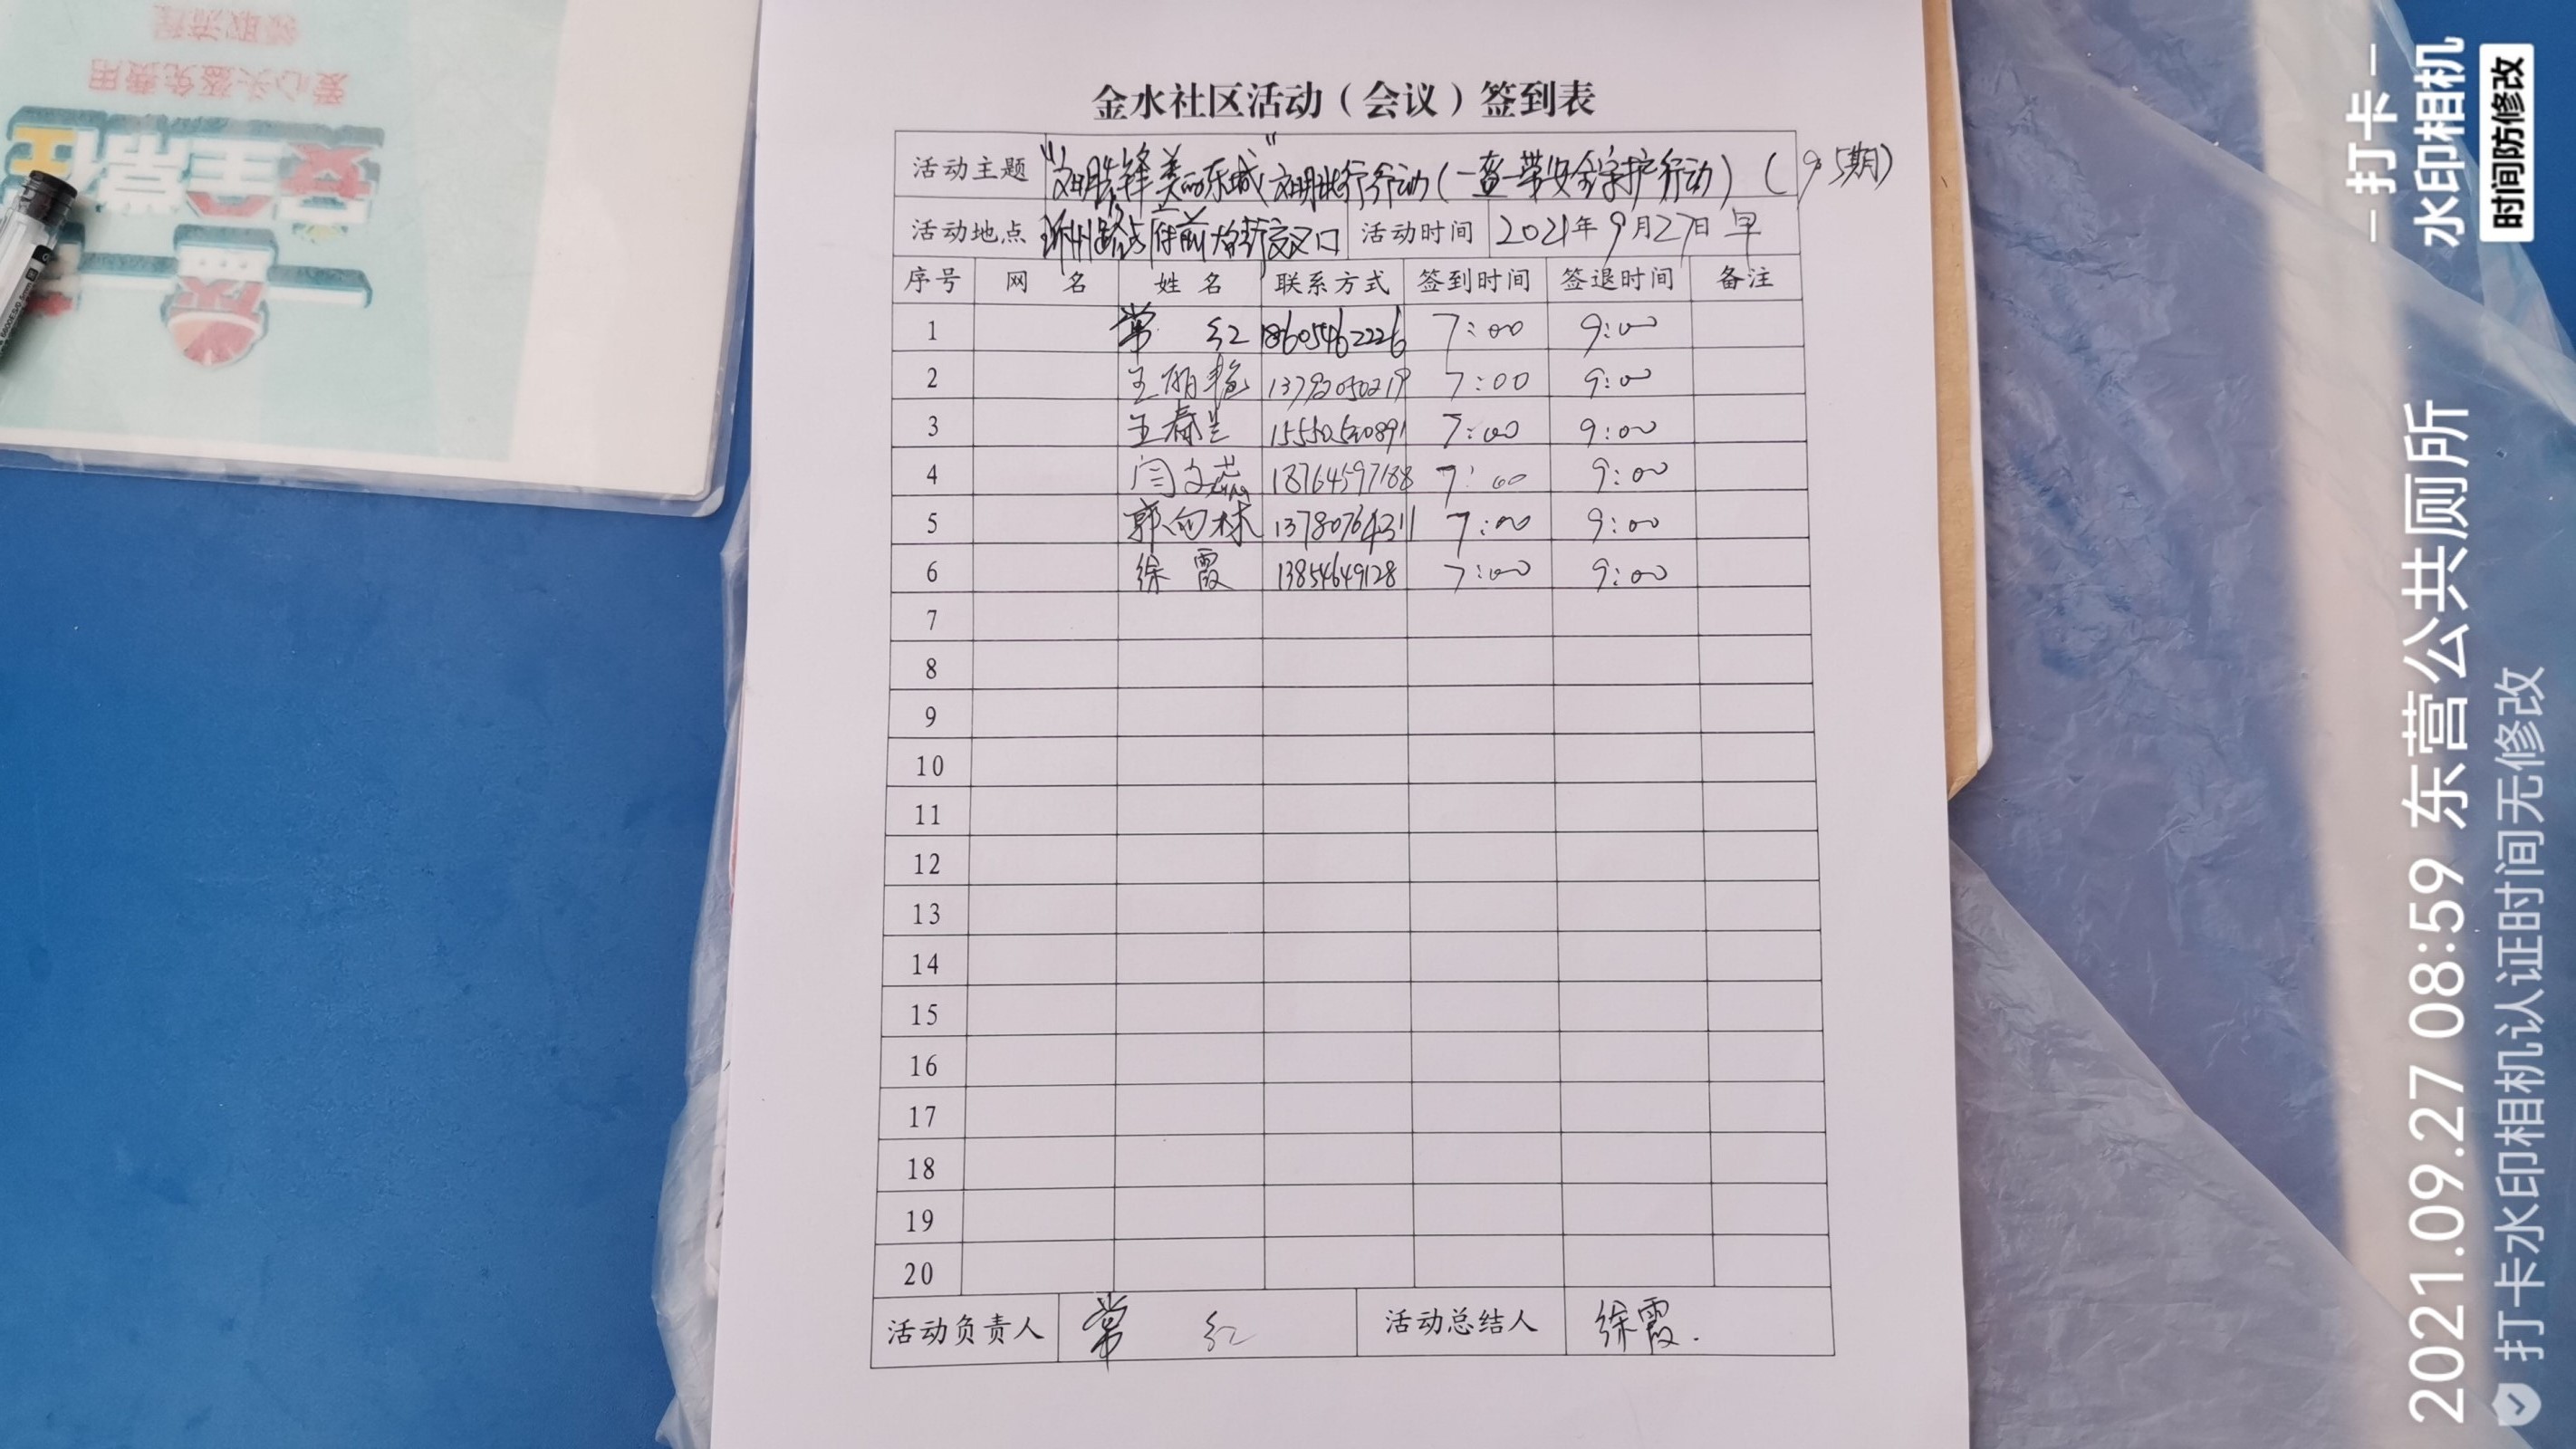 金水社区活动（会议）签到表
活动主题 "文明先锋 美丽东城"文明出行行动（一盔一带安全守护行动）（95期）
活动地点 沂州路与府前大街交叉口 活动时间 2021年9月27日 早
序号 网 名 姓 名 联系方式 签到时间 签退时间 备注
1 常 红 18605462226 7:00 9:00
2 王丽艳 7:00 9:00
3 王春兰 7:00 9:00
4 闫文蕊 18764597188 7:00 9:00
5 郭向林 13780764311 7:00 9:00
6 徐 霞 13854649128 7:00 9:00
7
8
9
10
11
12
13
14
15
16
17
18
19
20
活动负责人 常 红 活动总结人 徐霞.
爱心头盔免费用
打卡
水印相机
时间防修改
2021.09.27 08:59 东营公共厕所
打卡水印相机认证时间无修改